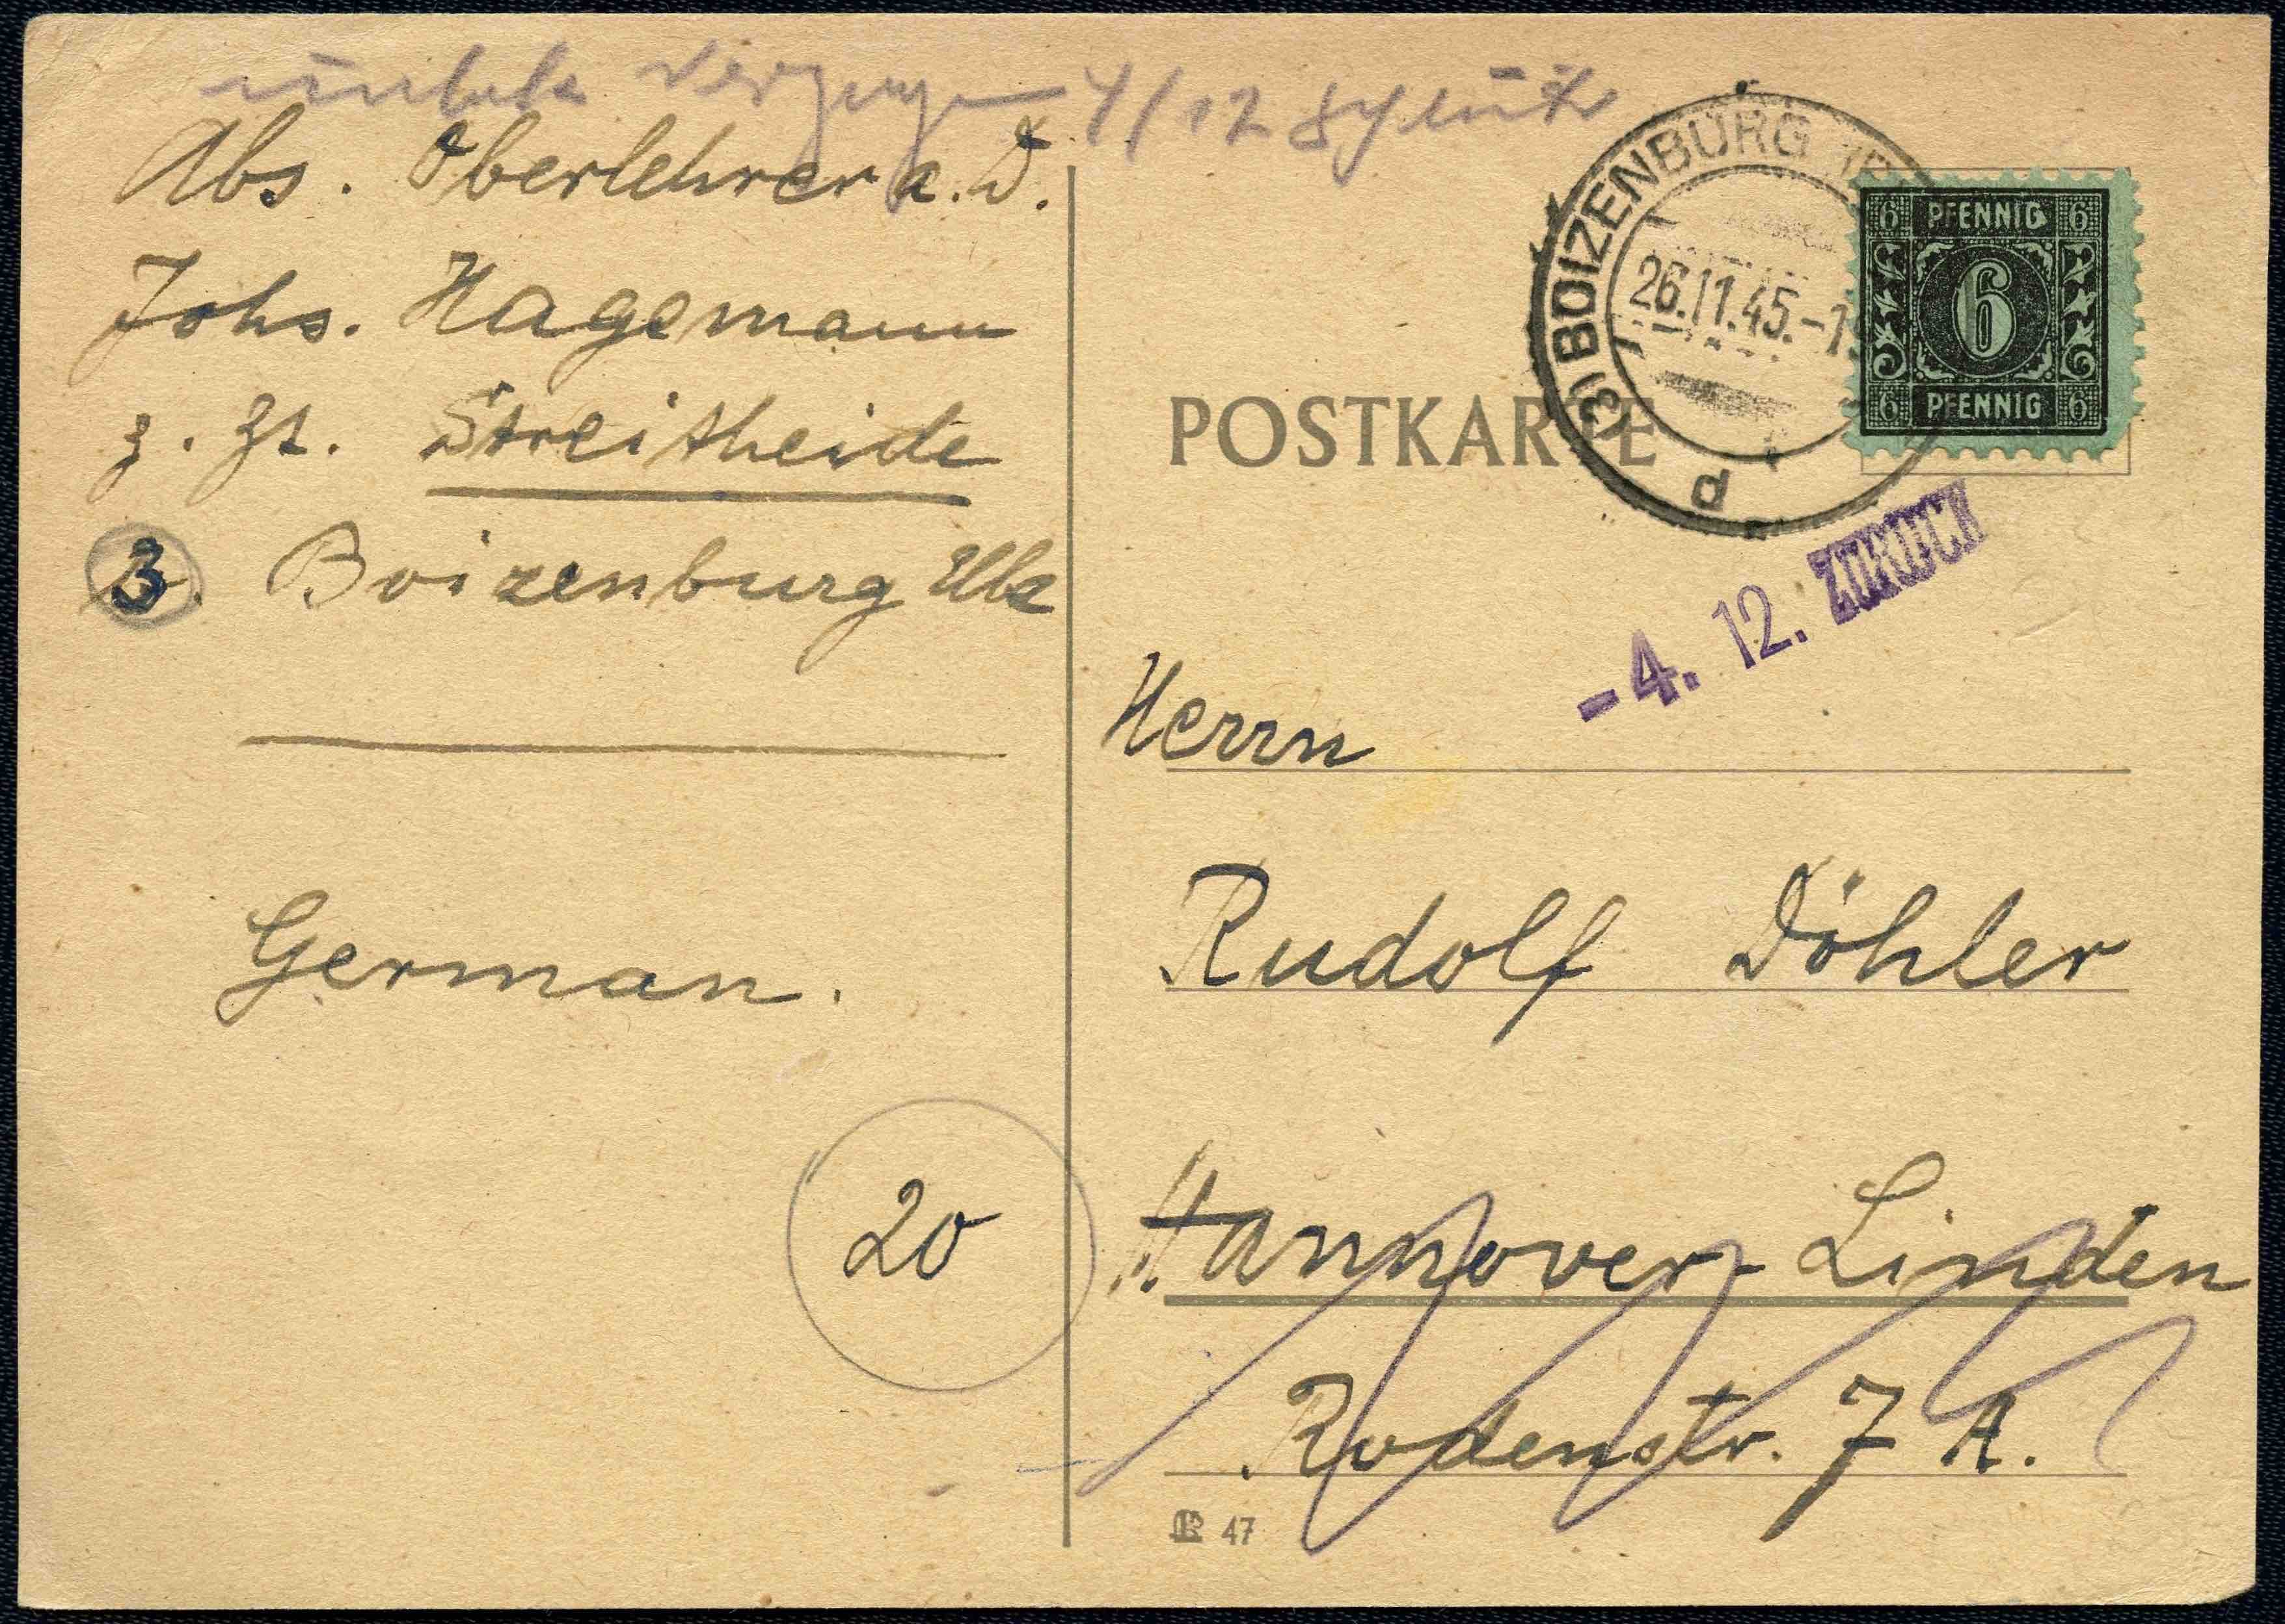 verzogen 4/12
Abs. Oberlehrer a. D.
Johs. Hagemann
z. Zt. Streitheide
3. Boizenburg Elbe
German.
20
(3) BOIZENBURG
26.11.45.-1
d
6 PFENNIG 6
6
6 PFENNIG 6
POSTKARTE
-4. 12. ZURÜCK
Herrn
Rudolf Döhler
Hannover-Linden
Rodenstr. 7 A.
47